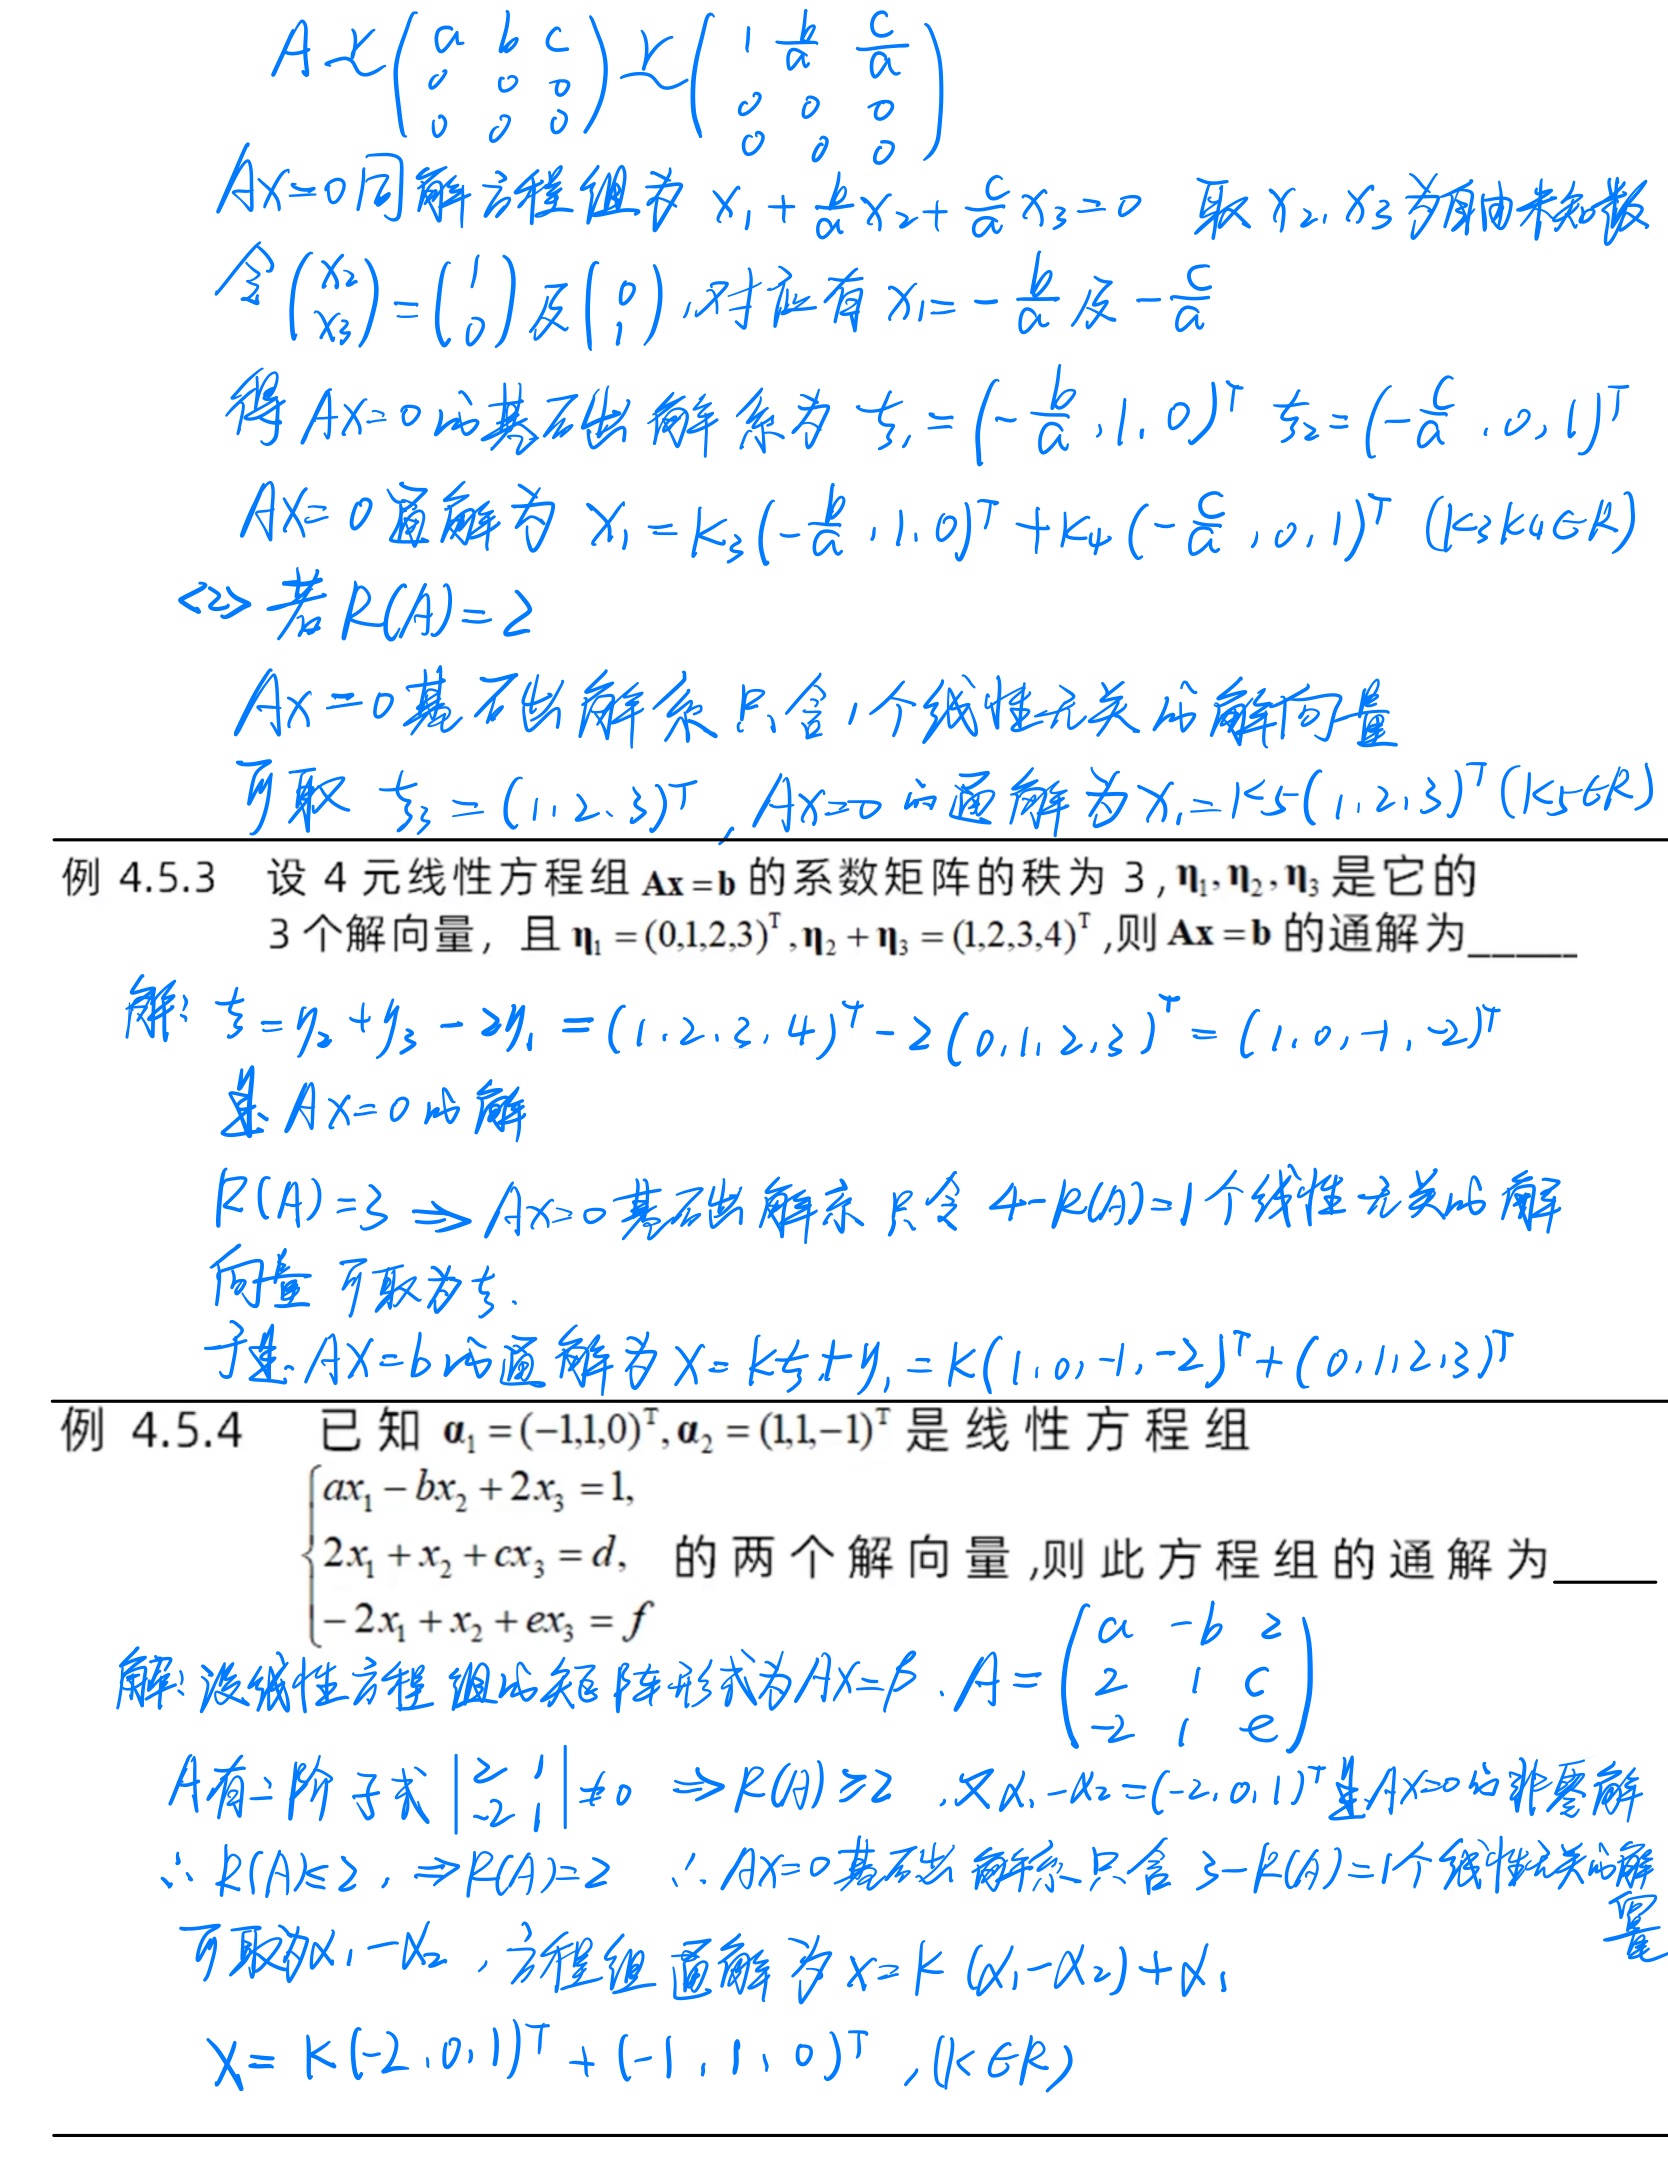 A ~r (a b c; 0 0 0; 0 0 0) ~r (1 b/a c/a; 0 0 0; 0 0 0)
AX=0同解方程组为 x₁+b/a x₂+c/a x₃=0 取x₂,x₃为自由未知数
令(x₂ x₃)=(1 0)及(0 1),对应有 x₁=-b/a 及 -c/a
得AX=0的基础解系为 ξ₁=(-b/a,1,0)ᵀ ξ₂=(-c/a,0,1)ᵀ
AX=0通解为 x₁=K₃(-b/a,1,0)ᵀ+K₄(-c/a,0,1)ᵀ (K₃K₄∈R)
<2> 若R(A)=2
AX=0基础解系只含1个线性无关的解向量
可取 ξ₃=(1,2,3)ᵀ, AX=0的通解为x₁=K₅(1,2,3)ᵀ(K₅∈R)
例 4.5.3 设 4 元线性方程组 Ax=b 的系数矩阵的秩为 3,η₁,η₂,η₃是它的
3个解向量，且 η₁=(0,1,2,3)ᵀ,η₂+η₃=(1,2,3,4)ᵀ,则 Ax=b 的通解为_____
解: ξ=η₂+η₃-2η₁=(1,2,3,4)ᵀ-2(0,1,2,3)ᵀ=(1,0,-1,-2)ᵀ
是AX=0的解
R(A)=3⇒AX=0基础解系只含 4-R(A)=1个线性无关的解
向量 可取为ξ.
于是AX=b的通解为X=Kξ+η₁=K(1,0,-1,-2)ᵀ+(0,1,2,3)ᵀ
例 4.5.4 已知 α₁=(-1,1,0)ᵀ,α₂=(1,1,-1)ᵀ 是线性方程组
ax₁-bx₂+2x₃=1,
2x₁+x₂+cx₃=d, 的两个解向量,则此方程组的通解为_____
-2x₁+x₂+ex₃=f
解:设线性方程组的矩阵形式为AX=β. A=(a -b 2; 2 1 c; -2 1 e)
A有二阶子式|2 1; -2 1|≠0 ⇒R(A)≥2 ,又α₁-α₂=(-2,0,1)ᵀ是AX=0的非零解
∴R(A)≤2, ⇒R(A)=2 ∴AX=0基础解系只含 3-R(A)=1个线性无关的解向量
可取为α₁-α₂, 方程组通解为x=K(α₁-α₂)+α₁
X=K(-2,0,1)ᵀ+(-1,1,0)ᵀ,(K∈R)